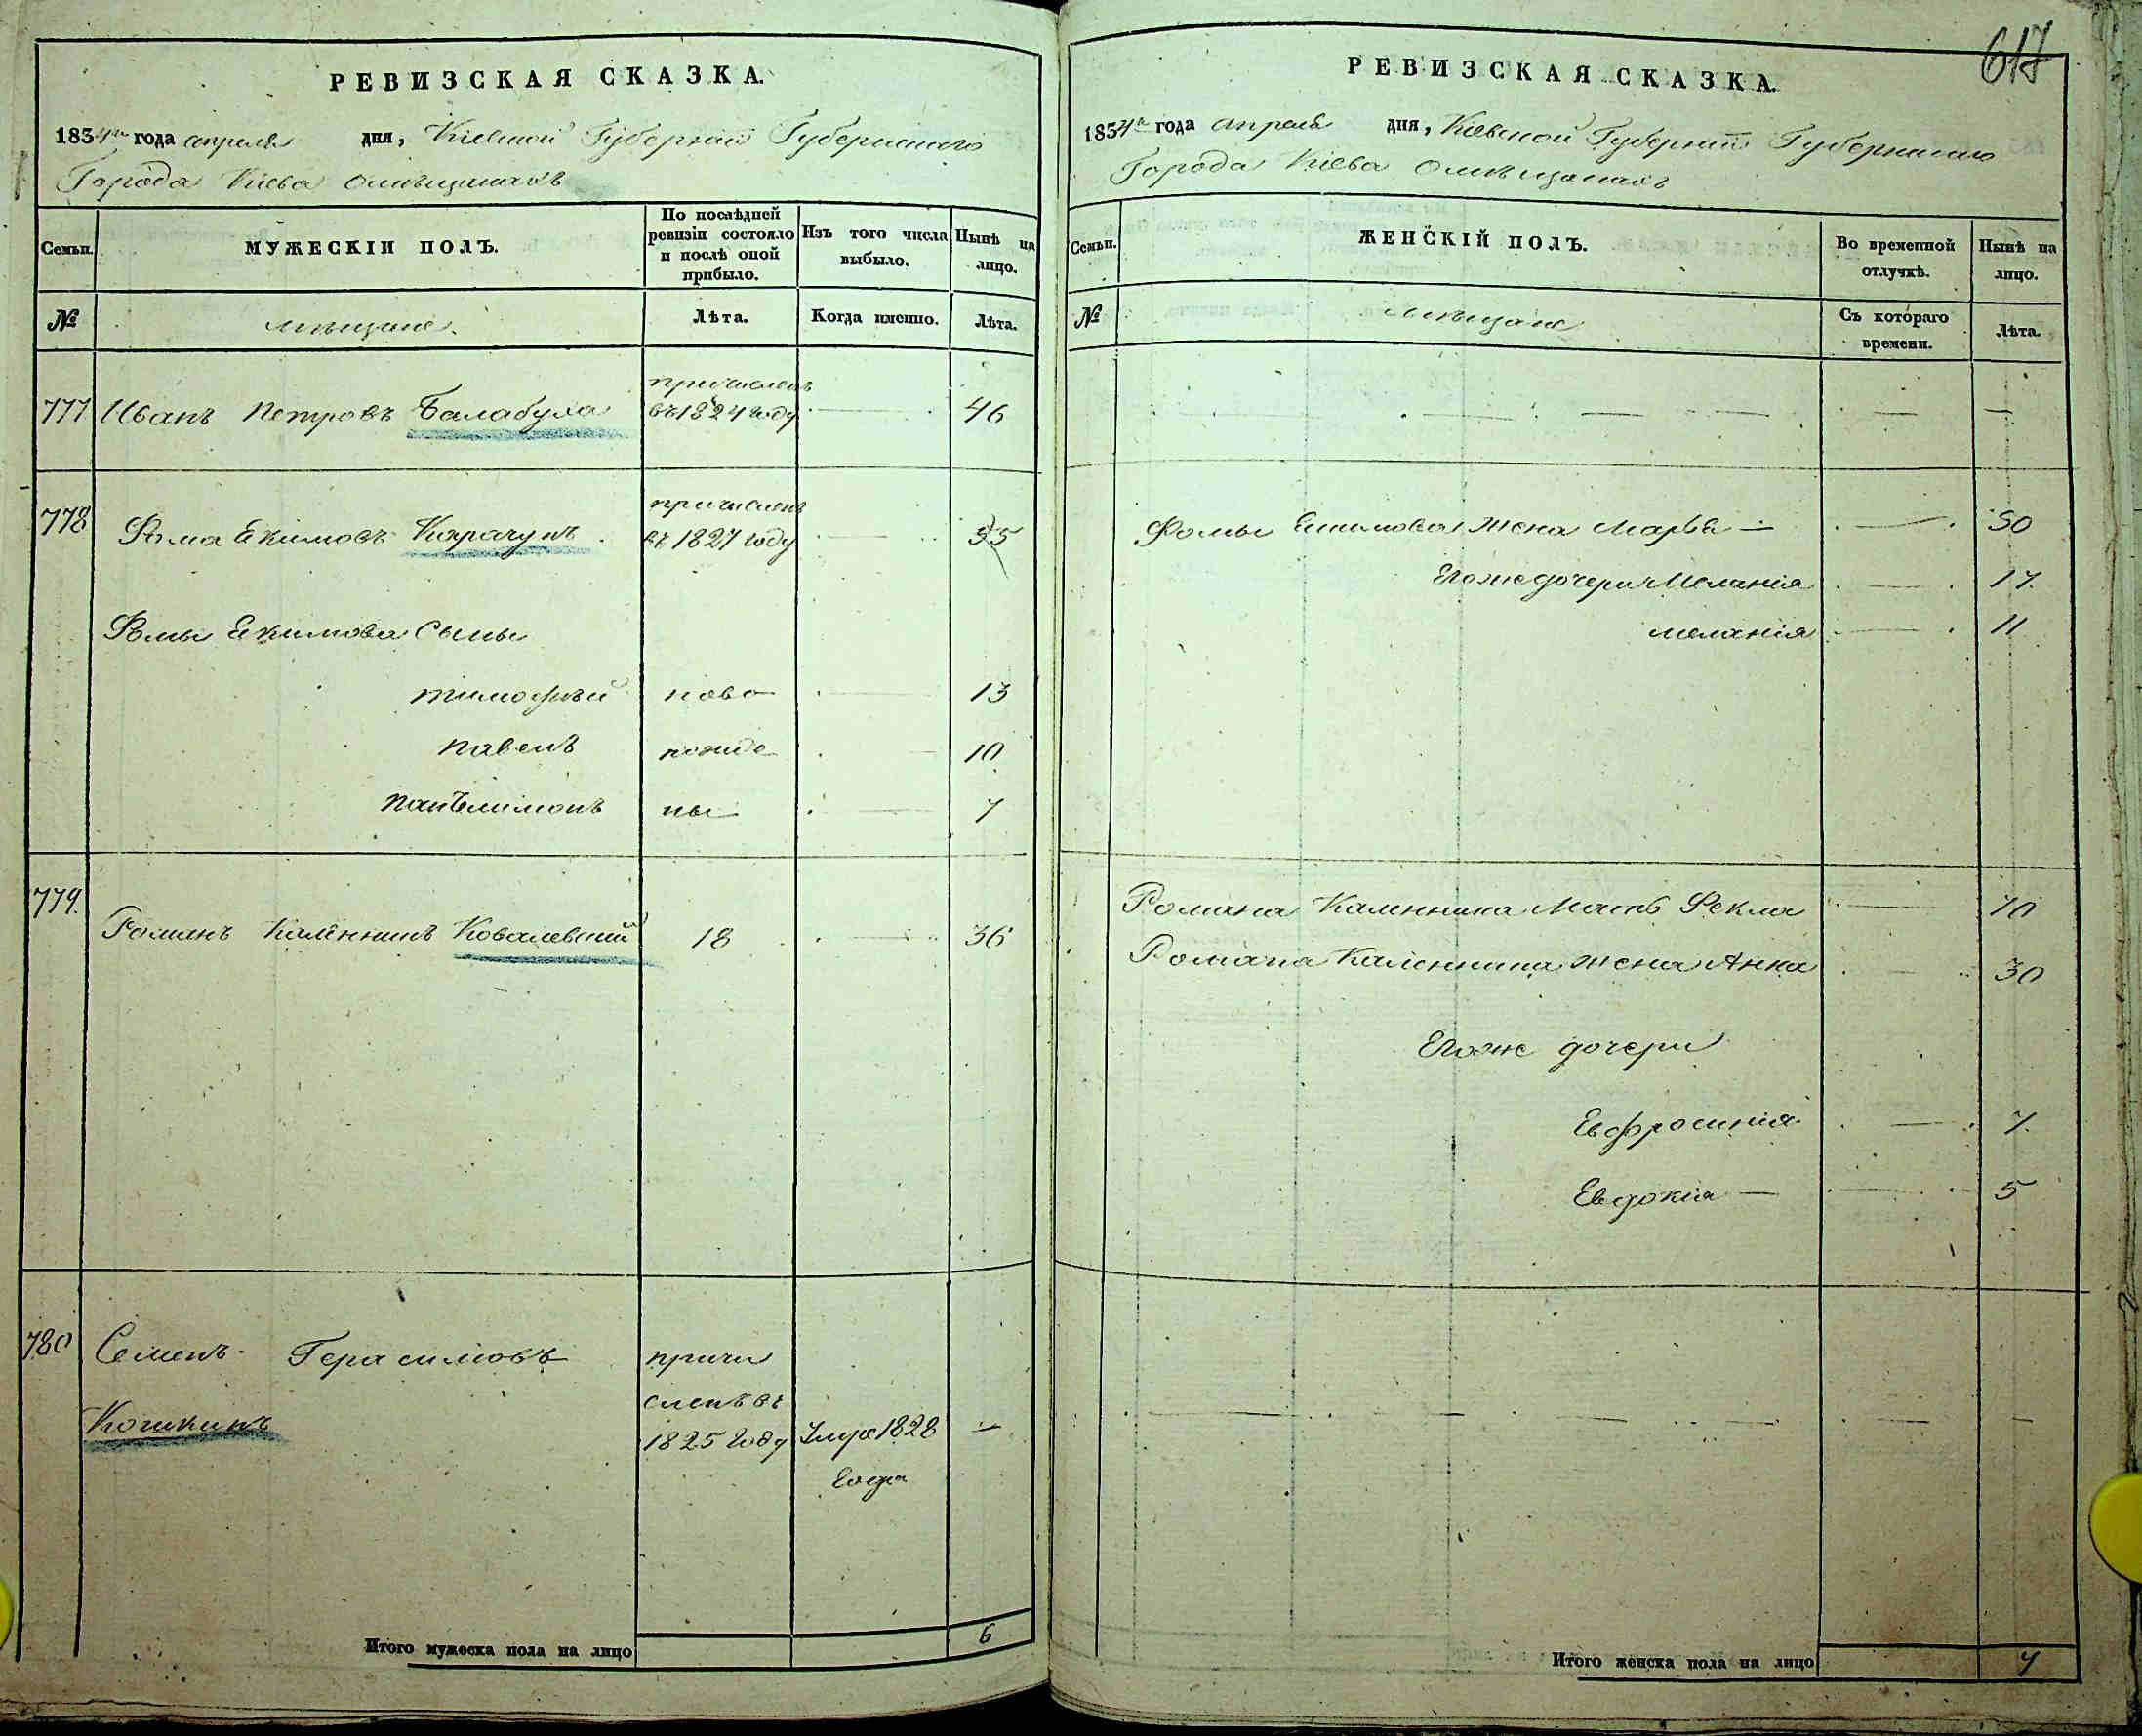 РЕВИЗСКАЯ СКАЗКА.
1834го года апреля дня, Кіевской Губерніи Губернскаго
Города Кіева омѣщанахъ
Семьи.
МУЖЕСКІИ ПОЛЪ.
По послѣдней ревизіи состояло и послѣ оной прибыло.
Изъ того числа выбыло.
Нынѣ на лицо.
№
мѣщане.
Лѣта.
Когда именно.
Лѣта.
777 Иванъ Петровъ Балабуха причисленъ въ 1824 году 46
778 Фома Екимовъ Карачунъ причисленъ въ 1827 году 55
Фомы Екимова Сыны
тимофѣй ново 13
павелъ рожде 10
пантелимонъ ны 7
779. Романъ Каленникъ Ковалевский 18 36
780 Семенъ Герасимовъ причи
сленъ въ
Кошкинъ 1825 году Умре 1828 —
Года
Итого мужеска пола на лицо 6
617
РЕВИЗСКАЯ СКАЗКА.
1834го года апреля дня, Кіевской Губерніи Губернскаго
Города Кіева омѣщанахъ
Семьи.
ЖЕНСКІЙ ПОЛЪ.
Во временной отлучкѣ.
Нынѣ на лицо.
№
мѣщане
Съ котораго времени.
Лѣта.
Фомы Екимова Жена Марья — 50
Егоже дочери 17
меланія 11
Романа Каленника Мать Фекла 70
Романа Каленника жена Анна 30
Егоже дочери
Евфросинія 7.
Евдокія — 5
Итого женска пола на лицо 7